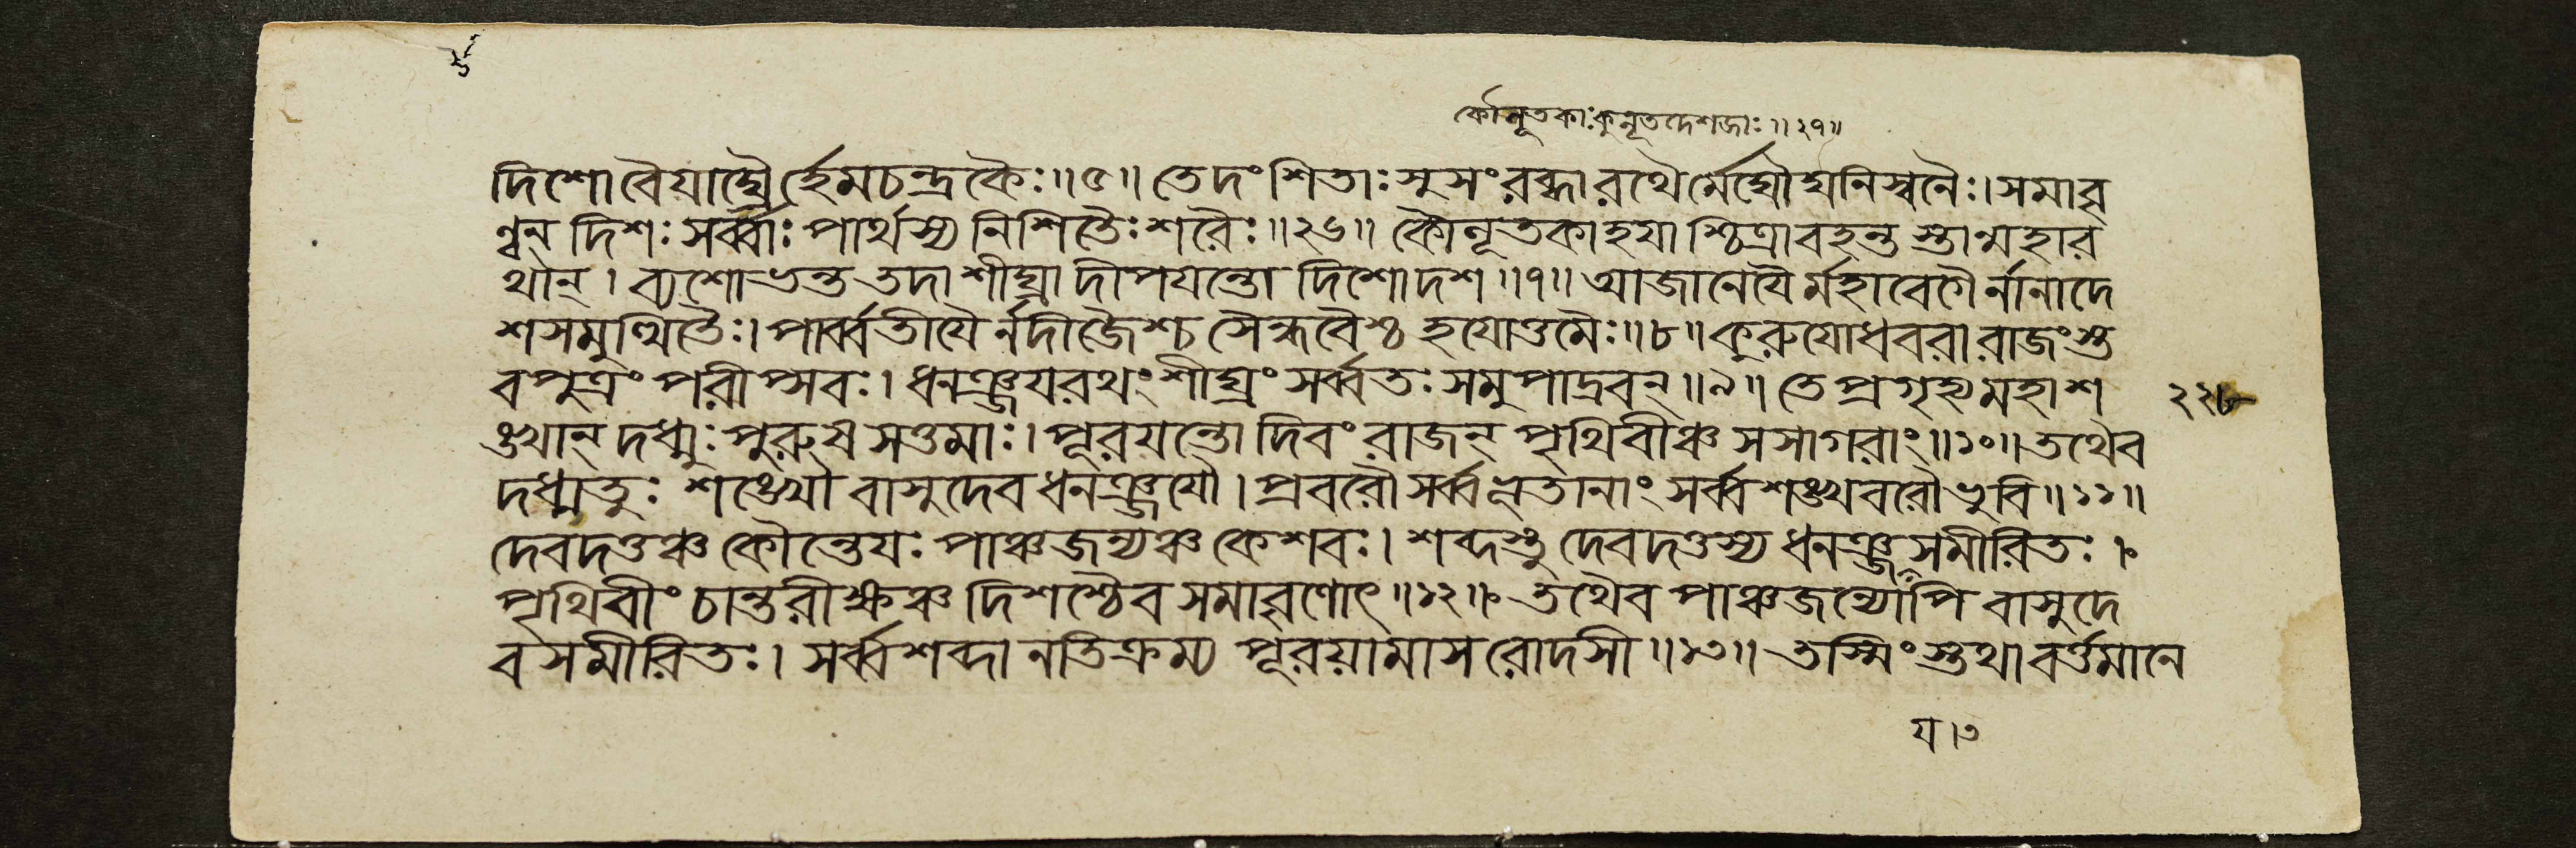 কৌলূতকাঃ কুলূতদেশজাঃ॥২৭॥
দিশো বৈয়াঘ্রৈর্হেমচন্দ্রকৈঃ॥৫॥ তে দংশিতাঃ সুসংরব্ধা রথৈর্মেঘৌঘনিস্বনৈঃ। সমাবৃ
ণ্বন্ দিশঃ সর্ব্বাঃ পার্থস্য নিশিতৈঃ শরৈঃ॥২৬॥ কৌলূতকা হয়াশ্চিত্রা বহন্তস্তান্মহার
থান্। ব্যশোভন্ত তদা শীঘ্রা দীপয়ন্তো দিশো দশ॥৭॥ আজানেয়ৈর্মহাবেগৈর্নানাদে
শসমুত্থিতৈঃ। পার্ব্বতীয়ৈর্নদীজৈশ্চ সৈন্ধবৈশ্চ হয়োত্তমৈঃ॥৮॥ কুরুযোধবরা রাজংস্ত
ব পুত্রং পরীপ্সবঃ। ধনঞ্জয়রথং শীঘ্রং সর্ব্বতঃ সমুপাদ্রবন্॥৯॥ তে প্রগৃহ্য মহাশ
২২৮
ঙ্খান্ দধ্মুঃ পুরুষসত্তমাঃ। পূরয়ন্তো দিবং রাজন্ পৃথিবীঞ্চ সসাগরাং॥১০॥ তথৈব
দধ্মতুঃ শঙ্খৌ বাসুদেবধনঞ্জয়ৌ। প্রবরৌ সর্ব্বভূতানাং সর্ব্বশঙ্খবরৌ ভুবি॥১১॥
দেবদত্তঞ্চ কৌন্তেয়ঃ পাঞ্চজন্যঞ্চ কেশবঃ। শব্দস্তু দেবদত্তস্য ধনঞ্জসমীরিতঃ।
পৃথিবীং চান্তরীক্ষঞ্চ দিশশ্চৈব সমাবৃণোৎ॥১২॥ তথৈব পাঞ্চজন্যোঽপি বাসুদে
বসমীরিতঃ। সর্ব্বশব্দানতিক্রম্য পূরয়ামাস রোদসী॥১৩॥ তস্মিংস্তথা বর্ত্তমানে
য।৩